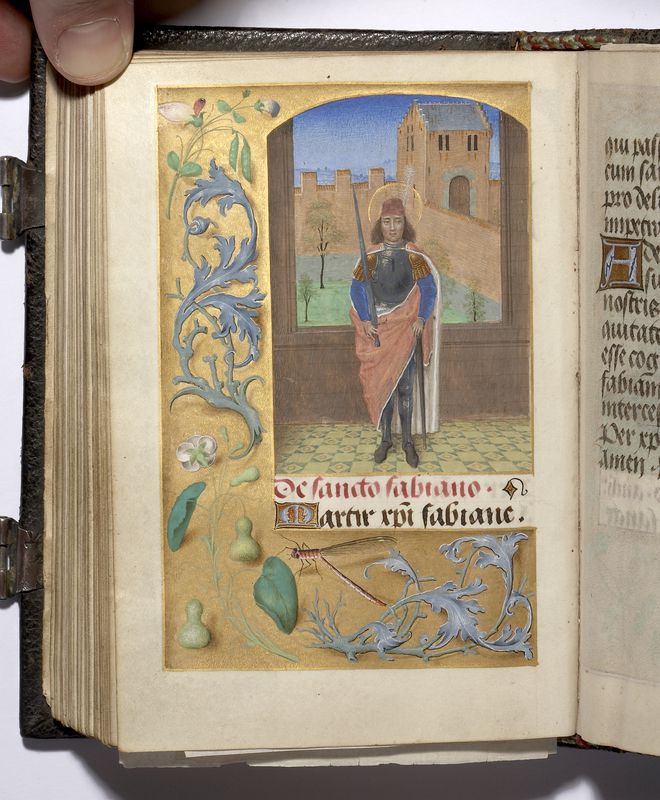 De sancto fabiano.
Martir xp̄i fabiane.
qui pass
cum sa
pro de
impetra
A de
su
nostris
quitatis
esse cog
fabian
interces
Per xp̄
amen